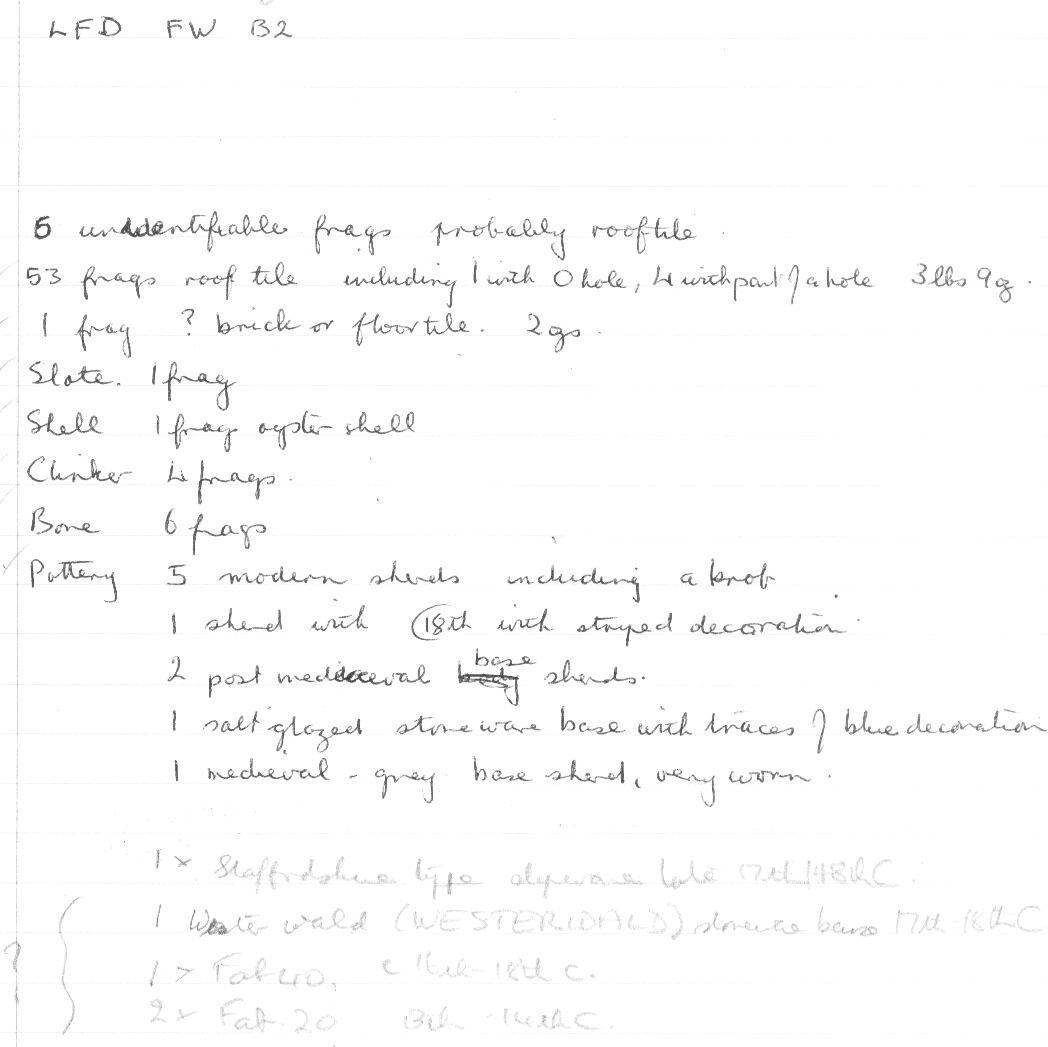 LFD FW B2
5 unidentifiable frags probably rooftile.
53 frags roof tile including 1 with O hole, 4 with part of a hole 3lbs 9oz.
1 frag ? brick or floortile. 2 gs.
Slate. 1 frag
Shell 1 frag oyster shell
Clinker 4 frags.
Bone 6 frags
Pottery 5 modern sherds including a knob.
1 sherd with 18th with striped decoration.
2 post medieval base sherds.
1 salt glazed stoneware base with traces of blue decoration
1 medieval - grey base sherd, very worn.
1 x Staffordshire type slipware late 17th/18th C.
? 1 Wester wald (WESTERWALD) base 17th-18th C
1 x Fab 40. c 16th-18th C.
2 x Fab. 20 13th-14th C.